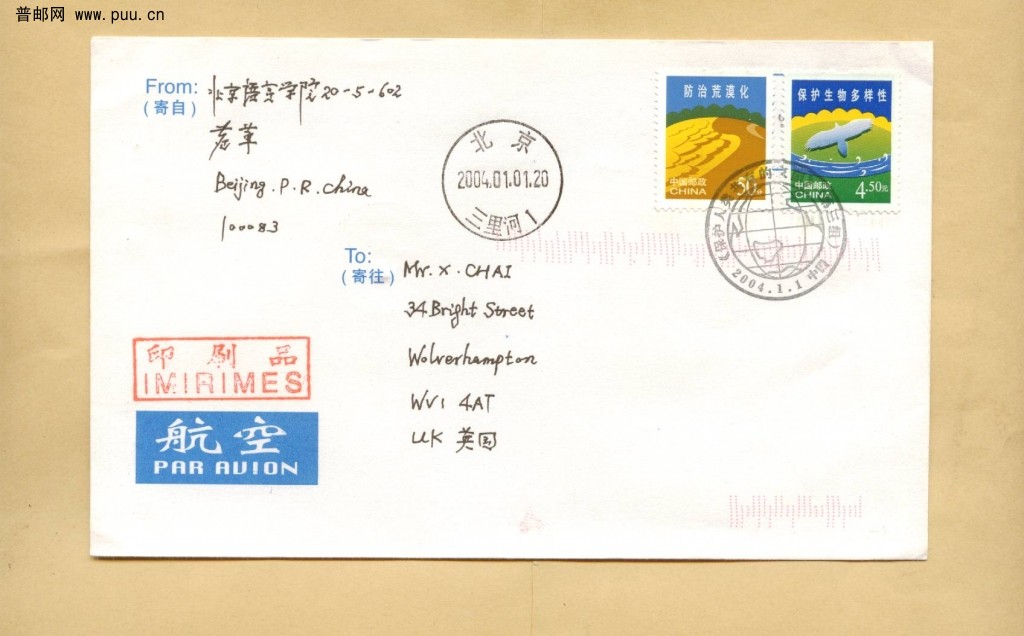 普邮网 www.puu.cn
From:
(寄自)
北京语言学院20-5-602
Beijing.P.R.China
100083
北京
2004.01.01.20
三里河1
防治荒漠化
中国邮政
CHINA
50
保护生物多样性
中国邮政
CHINA
4.50元
《保护人
三组)
2004.1.1 中国
To:
(寄往)
Mr. X. CHAI
34 Bright Street
Wolverhampton
WV1 4AT
UK 英国
印刷品
IMIRIMES
航空
PAR AVION